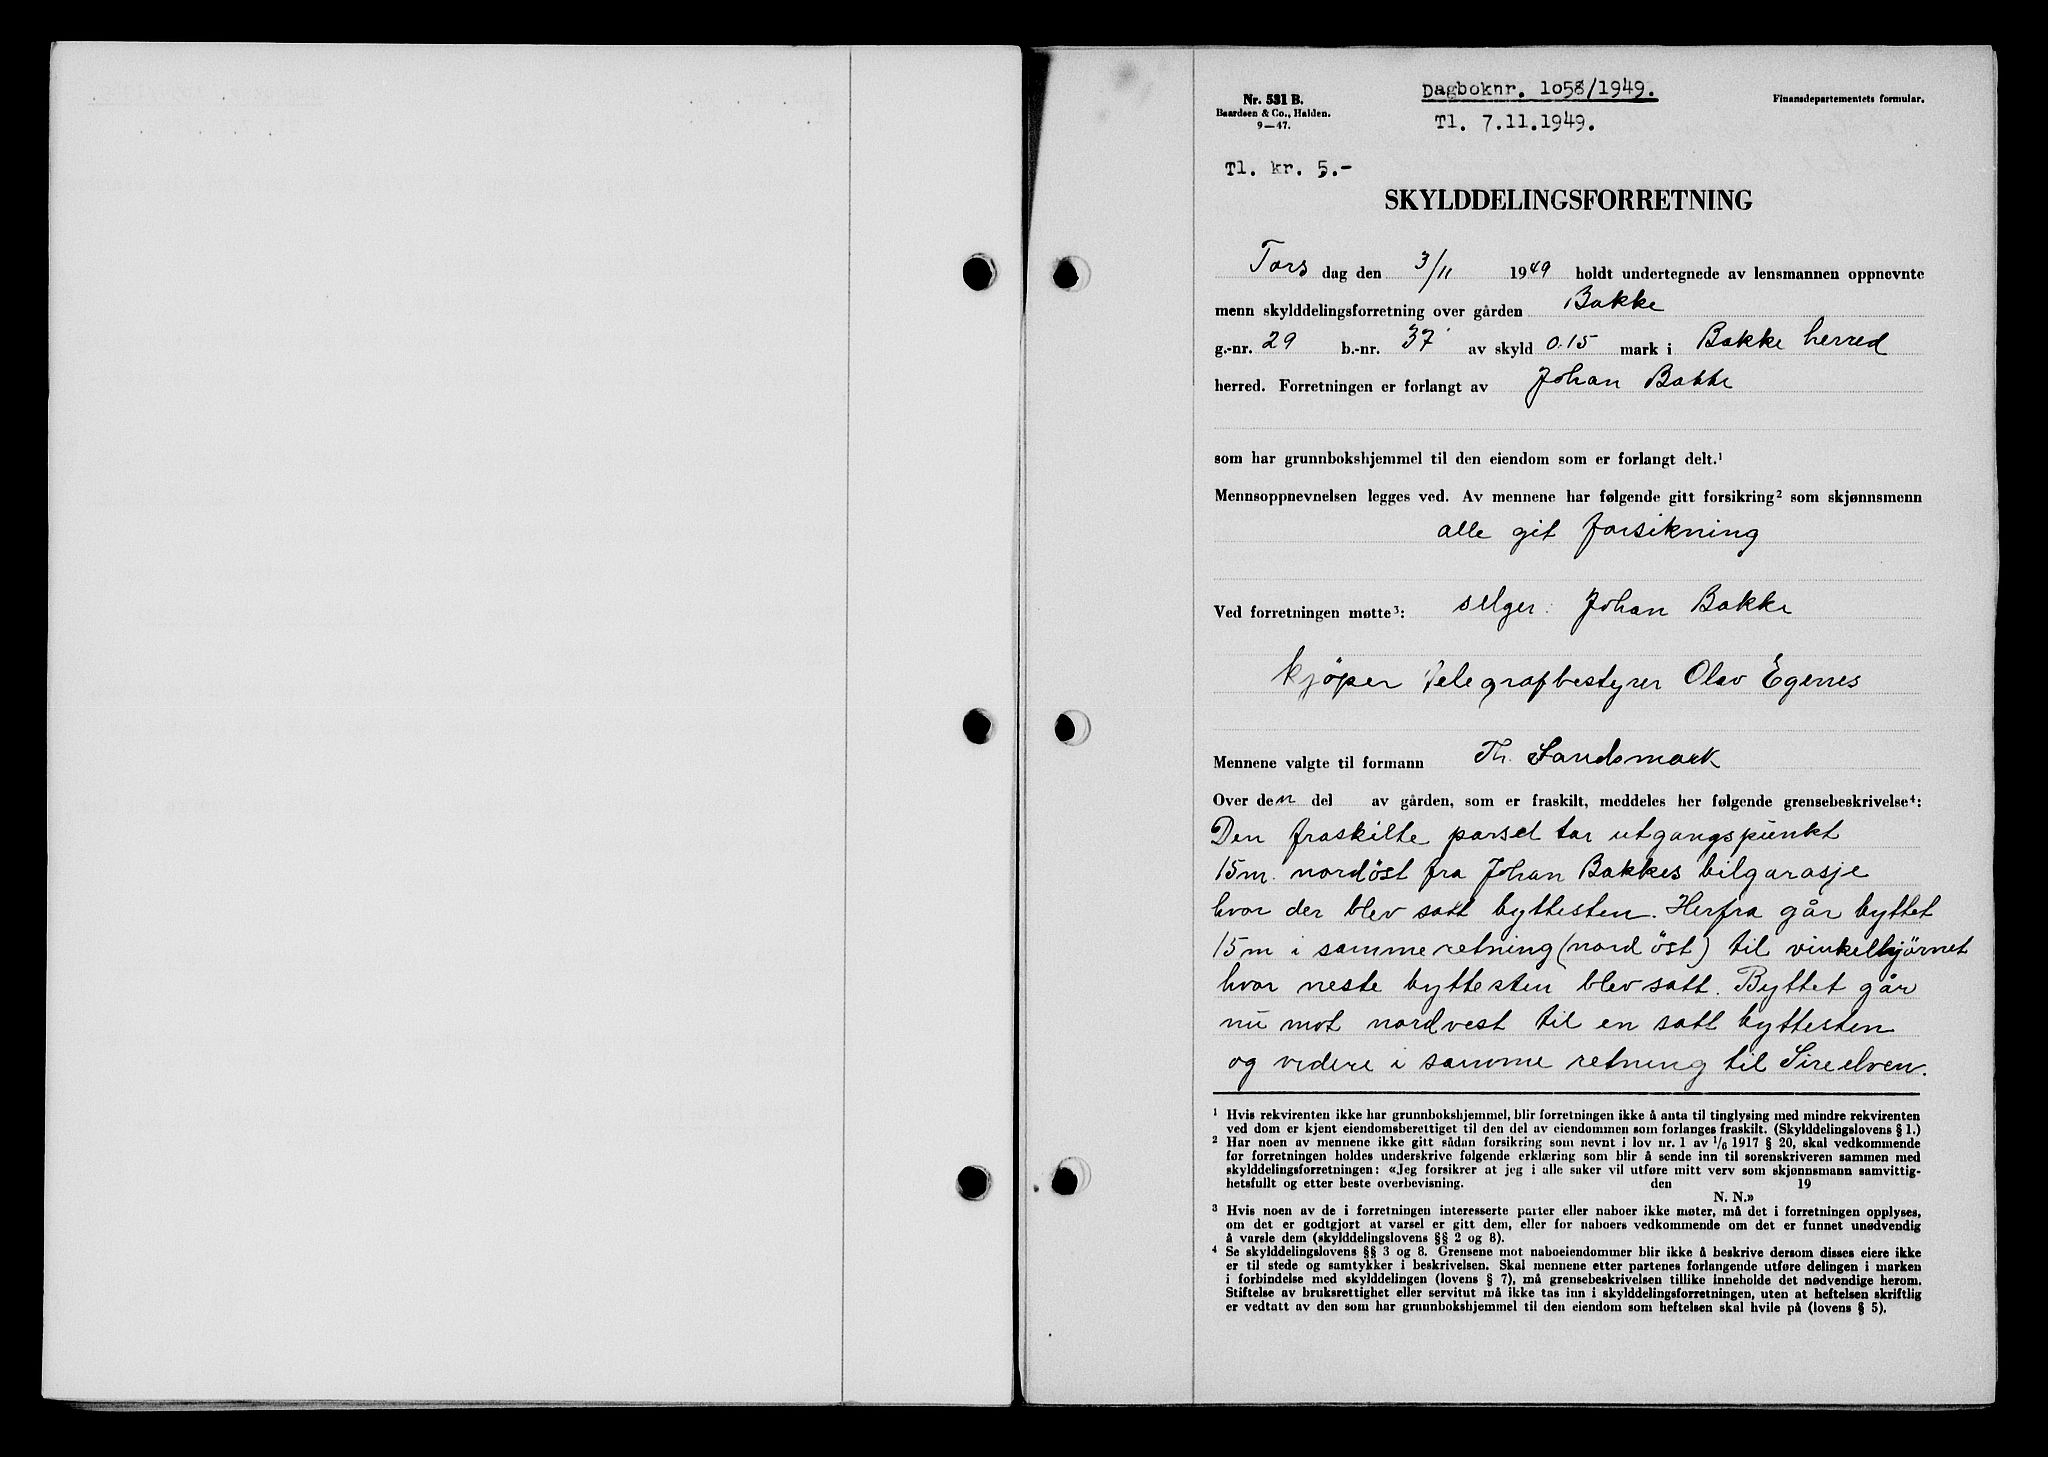 Nr. 531 B.
Baardsen & Co., Halden.
9—47.
Dagboknr. 1058/1949.
Tl. 7.11.1949.
Finansdepartementets formular.
Tl. kr. 5.-
SKYLDDELINGSFORRETNING
Tors dag den 3/11 1949 holdt undertegnede av lensmannen oppnevnte
menn skylddelingsforretning over gården Bakke
g.-nr. 29 b.-nr. 37 av skyld 0.15 mark i Bakke herred
herred. Forretningen er forlangt av Johan Bakke
som har grunnbokshjemmel til den eiendom som er forlangt delt.¹
Mennsoppnevnelsen legges ved. Av mennene har følgende gitt forsikring² som skjønnsmenn
alle git forsikning
Ved forretningen møtte³: selger: Johan Bakke
kjöper Telegrafbestyrer Olav Egenes
Mennene valgte til formann Th. Sandsmark
Over den del av gården, som er fraskilt, meddeles her følgende grensebeskrivelse⁴:
Den fraskilte parsel tar utgangspunkt
15m. nordöst fra Johan Bakkes bilgarasje
hvor der blev satt byttesten. Herfra går byttet
15m i samme retning (nord öst) til vinkelhjörnet
hvor neste byttesten blev satt. Byttet går
nu mot nordvest til en satt byttesten
og videre i samme retning til Sireelven.
¹ Hvis rekvirenten ikke har grunnbokshjemmel, blir forretningen ikke å anta til tinglysing med mindre rekvirenten
ved dom er kjent eiendomsberettiget til den del av eiendommen som forlanges fraskilt. (Skylddelingslovens § 1.)
² Har noen av mennene ikke gitt sådan forsikring som nevnt i lov nr. 1 av 1/6 1917 § 20, skal vedkommende
før forretningen holdes underskrive følgende erklæring som blir å sende inn til sorenskriveren sammen med
skylddelingsforretningen: «Jeg forsikrer at jeg i alle saker vil utføre mitt verv som skjønnsmann samvittig-
hetsfullt og etter beste overbevisning. den 19
N. N.»
³ Hvis noen av de i forretningen interesserte parter eller naboer ikke møter, må det i forretningen opplyses,
om det er godtgjort at varsel er gitt dem, eller for naboers vedkommende om det er funnet unødvendig
å varsle dem (skylddelingslovens §§ 2 og 8).
⁴ Se skylddelingslovens §§ 3 og 8. Grensene mot naboeiendommer blir ikke å beskrive dersom disses eiere ikke
er til stede og samtykker i beskrivelsen. Skal mennene etter partenes forlangende utføre delingen i marken
i forbindelse med skylddelingen (lovens § 7), må grensebeskrivelsen tillike inneholde det nødvendige herom.
Stiftelse av bruksrettighet eller servitut må ikke tas inn i skylddelingsforretningen, uten at heftelsen skriftlig
er vedtatt av den som har grunnbokshjemmel til den eiendom som heftelsen skal hvile på (lovens § 5).